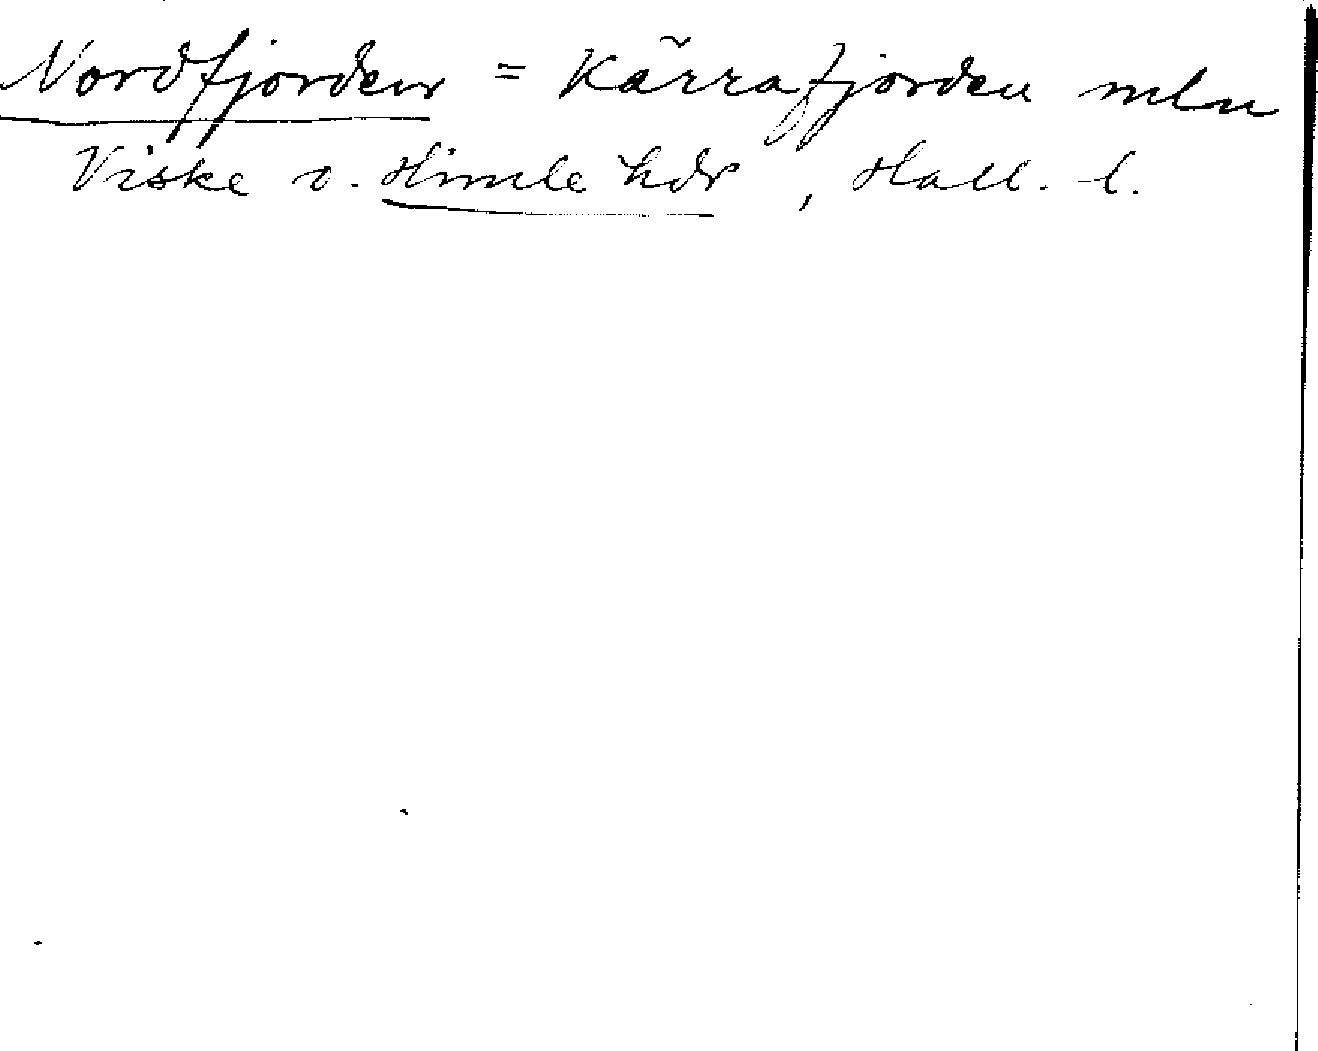 Nordfjorden = Kärrafjorden mln
Viske o. Himle hdr, Hall. l.